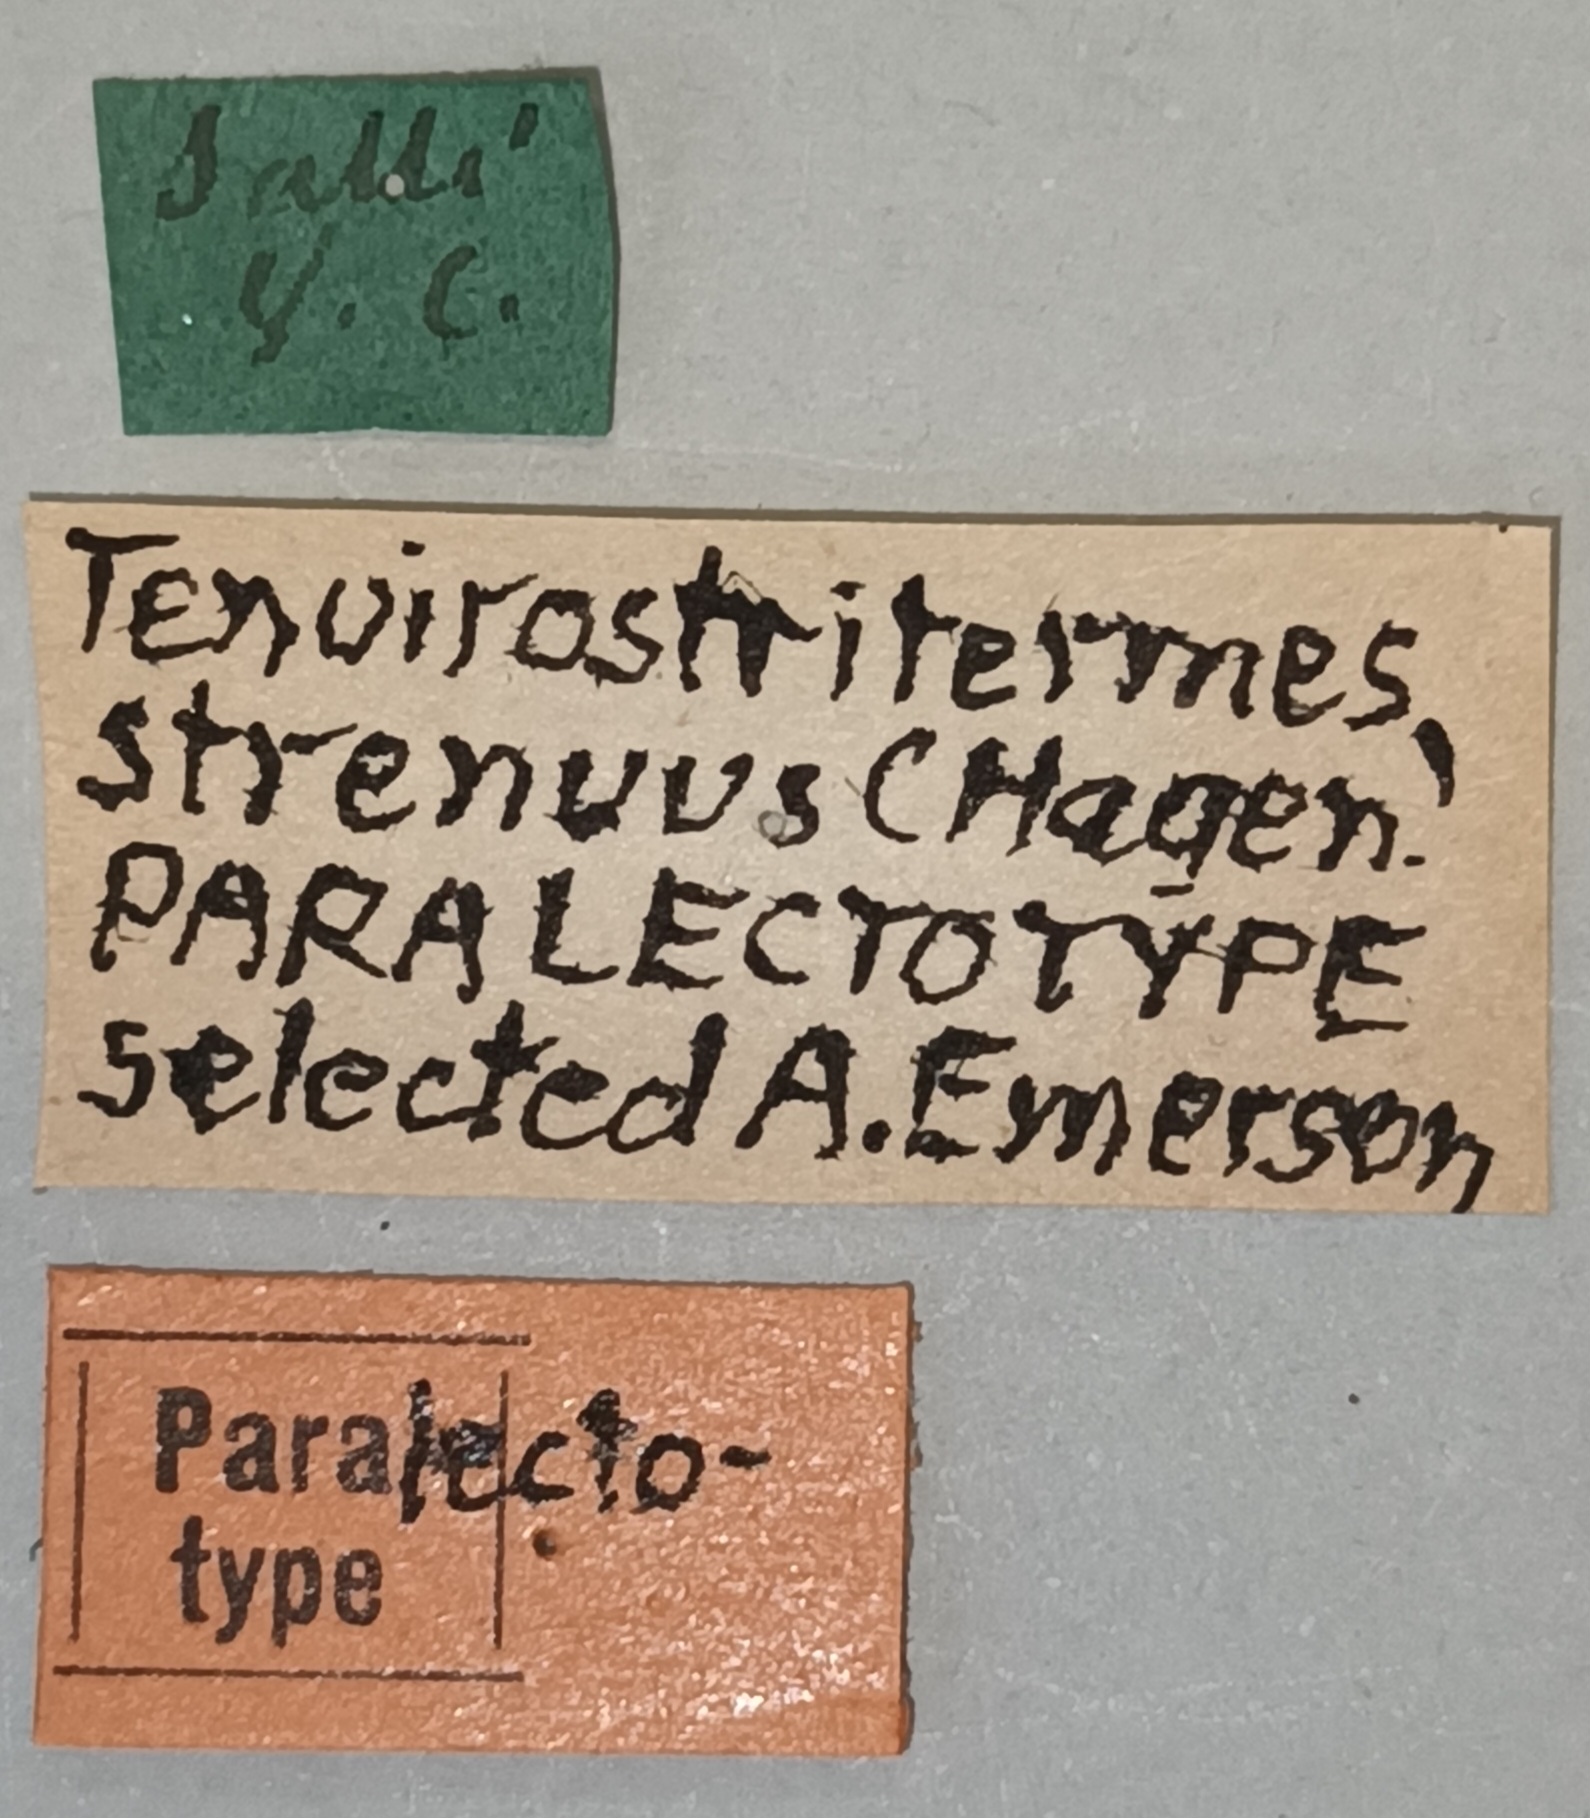 V. C.
Tenuirostritermes
strenuus (Hagen.)
PARALECTOTYPE
selected A. Emerson
Paralecto-
type